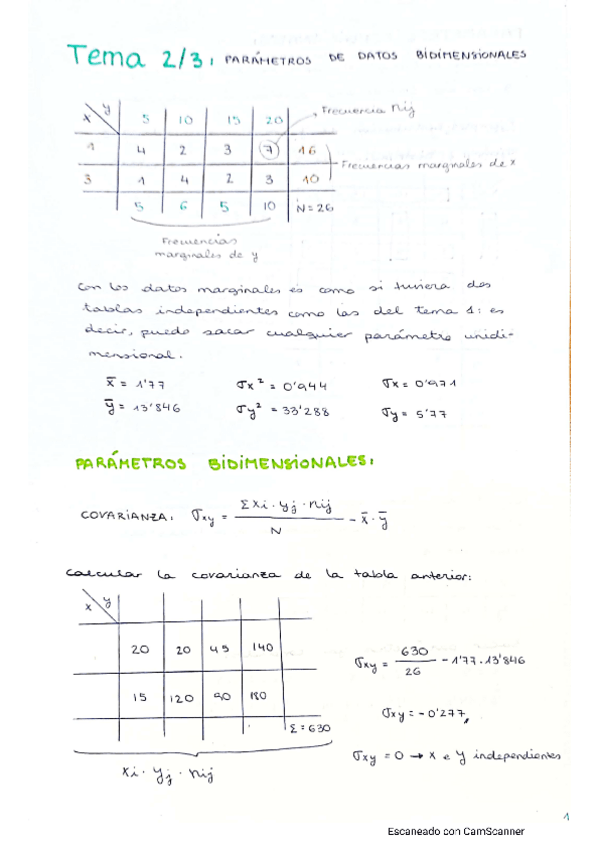 Tema 2/3: PARÁMETROS DE DATOS BIDIMENSIONALES
x y 5 10 15 20 Frecuencia nij
1 4 2 3 7 16
Frecuencias marginales de x
3 1 4 2 3 10
5 6 5 10 N = 26
Frecuencias
marginales de y
Con los datos marginales es como si tuviera dos
tablas independientes como las del tema 1: es
decir, puedo sacar cualquier parámetro unidi-
mensional.
x̄ = 1'77 σx² = 0'944 σx = 0'971
ȳ = 13'846 σy² = 33'288 σy = 5'77
PARÁMETROS BIDIMENSIONALES:
COVARIANZA: σxy = Σxi · yj · nij / N - x̄ · ȳ
Calcular la covarianza de la tabla anterior:
x y
20 20 45 140
σxy = 630 / 26 - 1'77 · 13'846
15 120 90 180
σxy = -0'277
Σ = 630
σxy = 0 → x e y independientes
xi · yj · nij
1
Escaneado con CamScanner